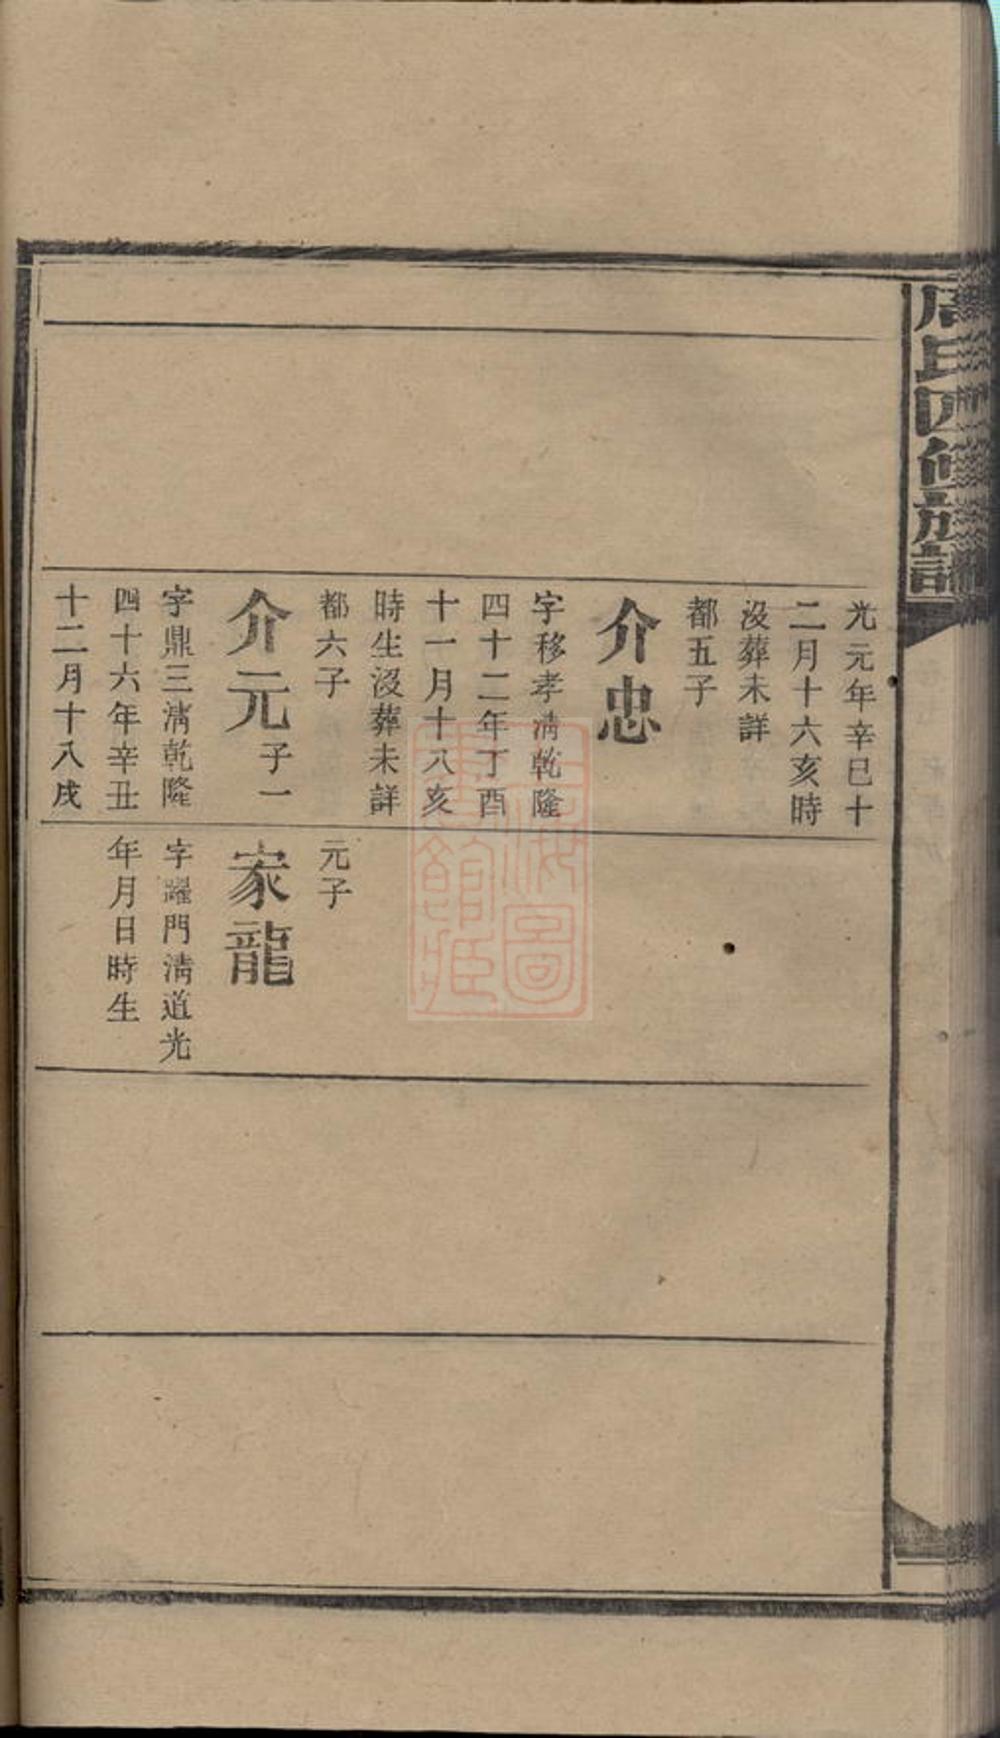 周氏四修族譜
光元年辛巳十
二月十六亥時
沒葬未詳
都五子
介忠
字移孝淸乾隆
四十二年丁酉
十一月十八亥
時生沒葬未詳
都六子
介元子一
字鼎三淸乾隆
四十六年辛丑
十二月十八戌
元子
家龍
字躍門淸道光
年月日時生
上海圖書館藏